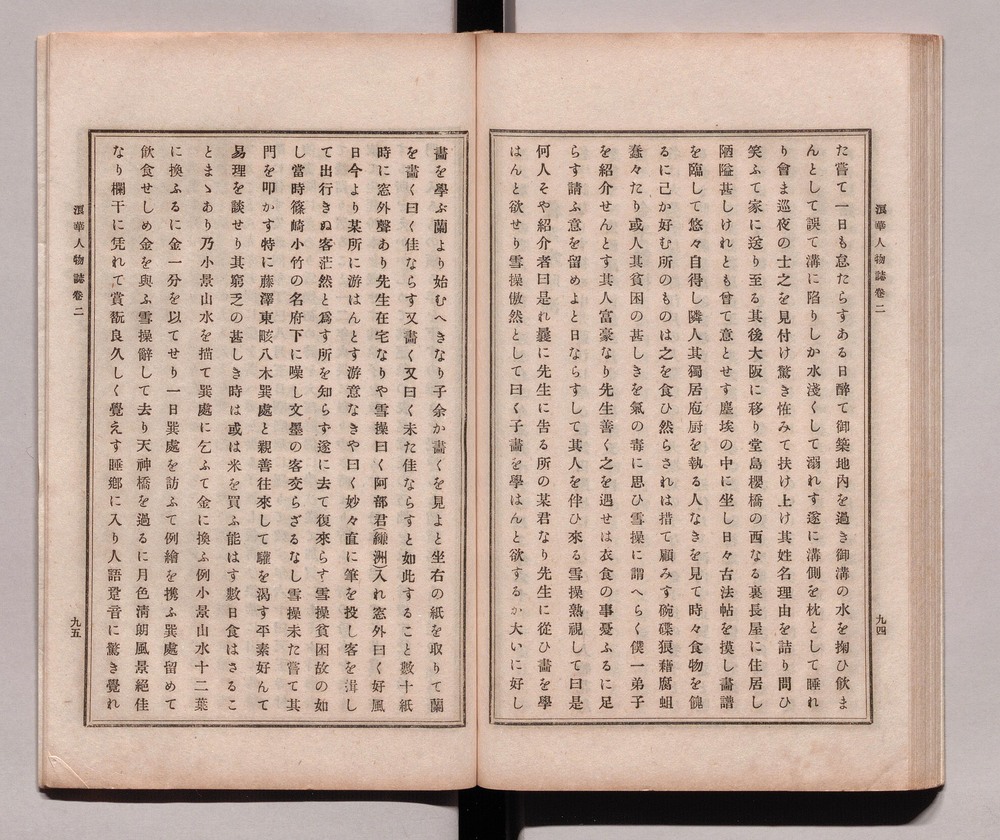 浪華人物誌卷二
九四
た嘗て一日も怠たらすある日醉て御築地內を過き御溝の水を掬ひ飮ま
んとして誤て溝に陷りしか水淺くして溺れす遂に溝側を枕として睡れ
り會ま巡夜の士之を見付け驚き恠みて扶け上け其姓名理由を詰り問ひ
笑ふて家に送り至る其後大阪に移り堂島櫻橋の西なる裏長屋に住居し
陋隘甚しけれとも曾て意とせす塵埃の中に坐し日々古法帖を摸し畵譜
を臨して悠々自得し隣人其獨居庖厨を執る人なきを見て時々食物を餽
るに己か好む所のものは之を食ひ然らされは措て顧みす碗碟狼藉腐蛆
蠢々たり或人其貧困の甚しきを氣の毒に思ひ雪操に謂へらく僕一弟子
を紹介せんとす其人富豪なり先生善く之を遇せは衣食の事憂ふるに足
らす請ふ意を留めよと日ならすして其人を伴ひ來る雪操熟視して曰是
何人そや紹介者曰是れ曩に先生に告る所の某君なり先生に從ひ畫を學
はんと欲せり雪操傲然として曰く子畫を學はんと欲するか大いに好し
畵を學ふ蘭より始むへきなり子余か畵くを見よと坐右の紙を取りて蘭
を畵く曰く佳ならす又畵く又曰く未た佳ならすと如此すること數十紙
時に窓外聲あり先生在宅なりや雪操曰く阿部君(縑洲)入れ窓外曰く好風
日今より某所に游はんとす游意なきや曰く妙々直に筆を投し客を揖し
て出行きぬ客茫然と爲す所を知らす遂に去て復來らす雪操貧困故の如
し當時篠崎小竹の名府下に噪し文墨の客交らざるなし雪操未た嘗て其
門を叩かす特に藤澤東畡八木巽處と親善往來して驩を渴す平素好んて
易理を談せり其窮乏の甚しき時は或は米を買ふ能はす數日食はさるこ
とまゝあり乃小景山水を描て巽處に乞ふて金に換ふ例小景山水十二葉
に換ふるに金一分を以てせり一日巽處を訪ふて例繪を携ふ巽處留めて
飮食せしめ金を與ふ雪操辭して去り天神橋を過るに月色淸朗風景絕佳
なり欄干に凭れて賞翫良久しく覺えす睡鄉に入り人語跫音に驚き覺れ
浪華人物誌卷二
九五